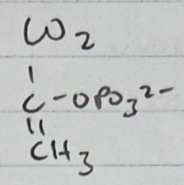 CO2
|
C-OPO3 2-
||
CH3